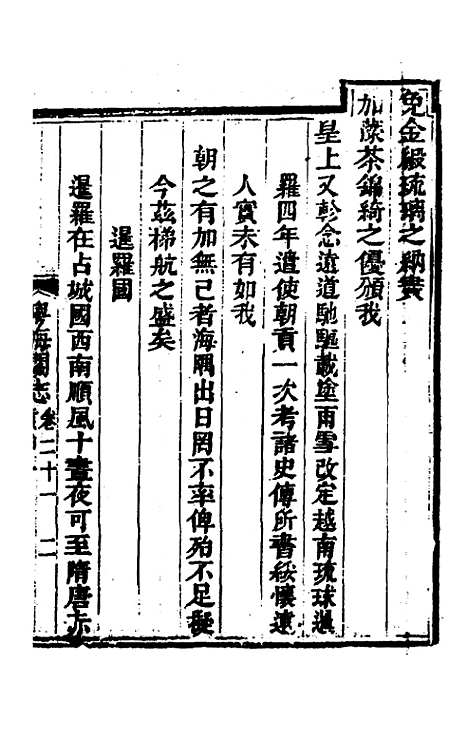 免金緞琉璃之納貢
加藻茶錦綺之優頒我
皇上又軫念遠道馳驅載塗雨雪改定越南琉球暹
羅四年遣使朝貢一次考諸史傳所書綏懷遠
人實未有如我
朝之有加無已者海隅出日罔不率俾殆不足擬
今茲梯航之盛矣
暹羅國
暹羅在占城國西南順風十晝夜可至隋唐赤
粵海關志 卷二十一 二